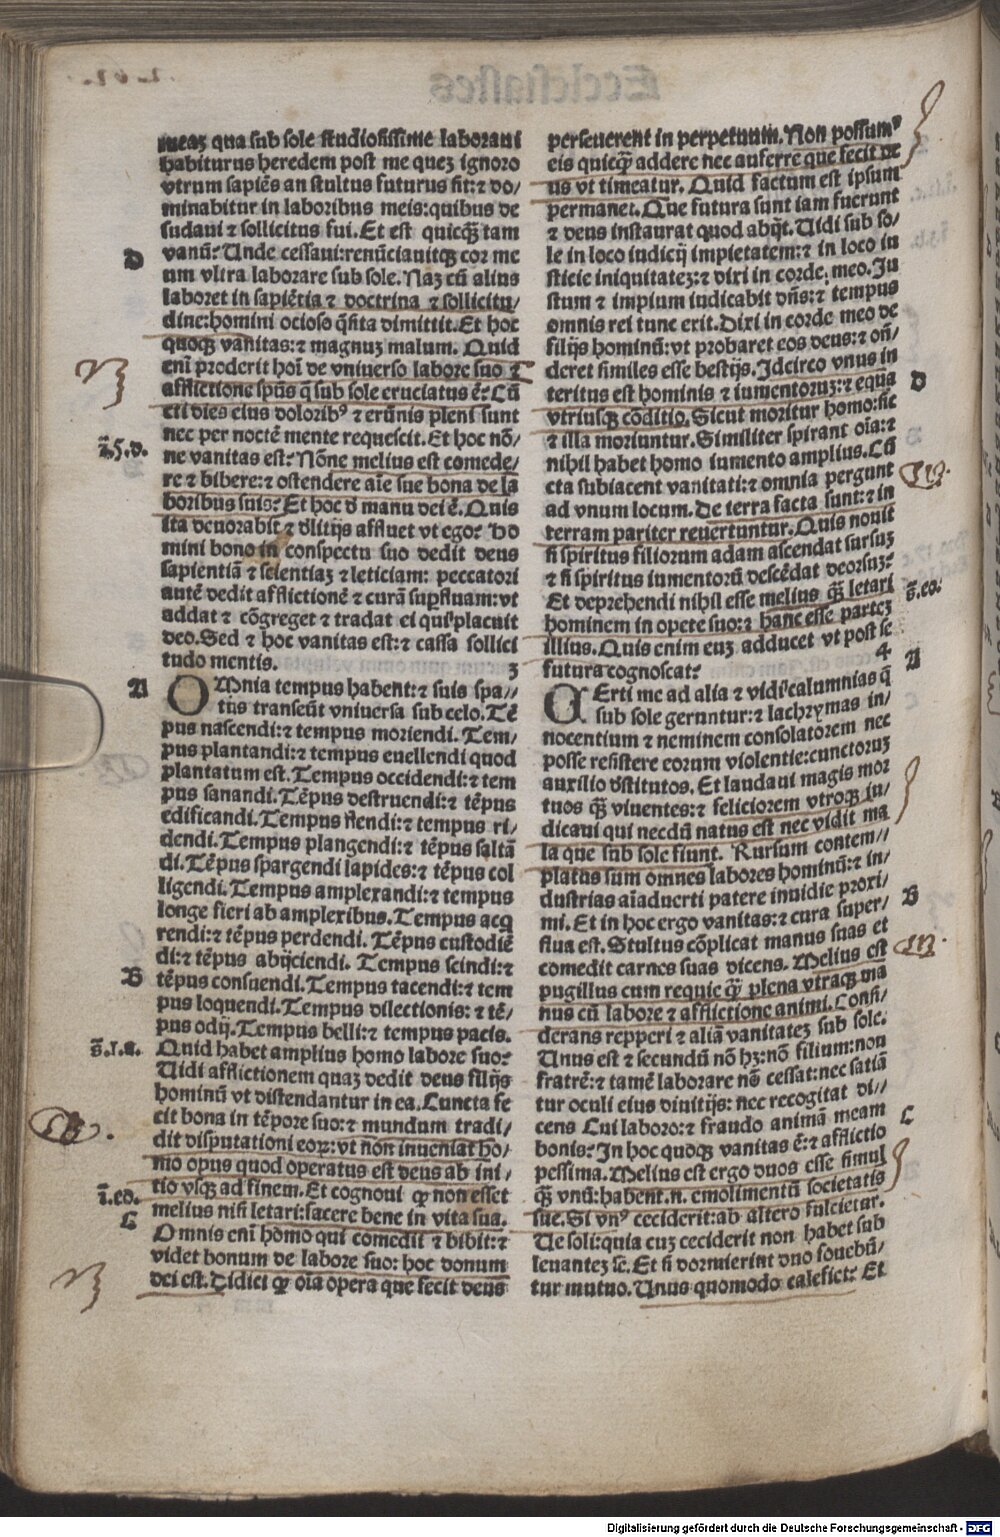 meaz qua sub sole studiosissime laboraui
habiturus heredem post me quez ignoro
vtrum sapiẽs an stultus futurus sit:⁊ do/
minabitur in laboribus meis:quibus de
sudaui ⁊ sollicitus fui. Et est quicq̃ tam
vanũ? Unde cessaui:renũciauitqꝫ cor me
D
um vltra laborare sub sole. Naz cũ alius
laboret in sapiẽtia ⁊ doctrina ⁊ sollicitu/
dine:homini ocioso q̃sita dimittit. Et hoc
quoqꝫ vanitas:⁊ magnuz malum. Quid
eni ̄ proderit hoi ̄ de vniuerso labore suo ⁊
afflictione spũs q̃ sub sole cruciatus ẽ? Cũ
cti dies eius dolorib⁹ ⁊ erũnis pleni sunt
nec per noctẽ mente requiescit. Et hoc nõ/
ne vanitas est? Nõne melius est comede/
re ⁊ bibere:⁊ ostendere aie ̄ sue bona de la
boribus suis? Et hoc đ manu dei ẽ. Quis
ita deuorabit ⁊ đlitijs affluet vt ego? Ho
mini bono in conspectu suo dedit deus
sapientiã ⁊ scientiaz ⁊ leticiam: peccatori
autẽ dedit afflictionẽ ⁊ curã suꝑfluam:vt
addat ⁊ cõgreget ⁊ tradat ei qui placuit
deo. Sed ⁊ hoc vanitas est:⁊ cassa sollici
tudo mentis. 3
A
OMnia tempus habent:⁊ suis spa//
tijs transeũt vniuersa sub celo. Tẽ
pus nascendi:⁊ tempus moriendi. Tem/
pus plantandi:⁊ tempus euellendi quod
plantatum est. Tempus occidendi:⁊ tem
pus sanandi. Tẽpus destruendi:⁊ tẽpus
edificandi. Tempus flendi:⁊ tempus ri/
dendi. Tempus plangendi:⁊ tẽpus saltã
di. Tẽpus spargendi lapides:⁊ tẽpus col
ligendi. Tempus amplexandi:⁊ tempus
longe fieri ab amplexibus. Tempus acq
rendi:⁊ tẽpus perdendi. Tẽpus custodiẽ
di:⁊ tẽpus abijciendi. Tempus scindi:⁊
B
tẽpus consuendi. Tempus tacendi:⁊ tem
pus loquendi. Tempus dilectionis: ⁊ tẽ/
pus odij. Tempus belli:⁊ tempus pacis.
s̄.1.a.
Quid habet amplius homo labore suo?
Uidi afflictionem quaz dedit deus filijs
hominũ vt distendantur in ea. Cuncta fe
cit bona in tẽpore suo:⁊ mundum tradi/
dit disputationi eoꝝ:vt non inueniat ho/
mo opus quod operatus est deus ab ini/
tio vsqꝫ ad finem. Et cognoui ꝙ non esset
i ̄.eo.
melius nisi letari:facere bene in vita sua.
C
Omnis eni ̄ homo qui comedit ⁊ bibit:⁊
videt bonum de labore suo: hoc donum
dei est. Didici ꝙ oĩa opera que fecit deus
perseuerent in perpetuum. Non possum⁹
eis quicq̃ addere nec auferre que fecit de
us vt timeatur. Quid factum est ipsum
permanet. Que futura sunt iam fuerunt
⁊ deus instaurat quod abijt. Uidi sub so/
le in loco iudicij impietatem:⁊ in loco iu
sticie iniquitatez:⁊ dixi in corde meo. Ju
stum ⁊ impium iudicabit dñs:⁊ tempus
omnis rei tunc erit. Dixi in corde meo de
filijs hominũ:vt probaret eos deus:⁊ oñ/
deret similes esse bestijs. Jdcirco vnus in
teritus est hominis ⁊ iumentoruz:⁊ equa
D
vtriusqꝫ cõditio. Sicut moritur homo:sic
⁊ illa moriuntur. Similiter spirant oĩa:⁊
nihil habet homo iumento amplius. Cũ
cta subiacent vanitati:⁊ omnia pergunt
ad vnum locum. De terra facta sunt:⁊ in
terram pariter reuertuntur. Quis nouit
si spiritus filiorum adam ascendat sursuz
⁊ si spiritus iumentorũ descẽdat deorsuz?
Et deprehendi nihil esse melius q̃ letari
s̄.eo.
hominem in opere suo:⁊ hanc esse partez
illius. Quis enim euz adducet vt post se
futura cognoscat? 4
A
UErti me ad alia ⁊ vidi calumnias q̃
sub sole geruntur:⁊ lachrymas in/
nocentium ⁊ neminem consolatorem nec
posse resistere eorum violentie:cunctoruz
auxilio đstitutos. Et laudaui magis mor
tuos q̃ viuentes:⁊ feliciorem vtroqꝫ iu/
dicaui qui necdũ natus est nec vidit ma
la que sub sole fiunt. Rursum contem//
platus sum omnes labores hominũ:⁊ in/
dustrias aĩaduerti patere inuidie proxi/
B
mi. Et in hoc ergo vanitas:⁊ cura super/
flua est. Stultus cõplicat manus suas et
comedit carnes suas dicens. Melius est
pugillus cum requie q̃ plena vtraqꝫ ma
nus cũ labore ⁊ afflictione animi. Consi/
derans repperi ⁊ aliã vanitatez sub sole.
Unus est ⁊ secundũ nõ hꝫ:nõ filium:non
fratrẽ:⁊ tamẽ laborare nõ cessat:nec satiã
tur oculi eius diuitijs: nec recogitat di//
cens Cui laboro:⁊ fraudo animã meam
C
bonis? Jn hoc quoqꝫ vanitas ẽ:⁊ afflictio
pessima. Melius est ergo duos esse simul
q̃ vnũ:habent.n. emolimentũ societatis
sue. Si vn⁹ ceciderit:ab altero fulcietur.
Ue soli:quia cuz ceciderit non habet sub
leuantez se ̄. Et si dormierint duo fouebũ/
tur mutuo. Unus quomodo calefiet? Et
Digitalisierung gefördert durch die Deutsche Forschungsgemeinschaft - DFG